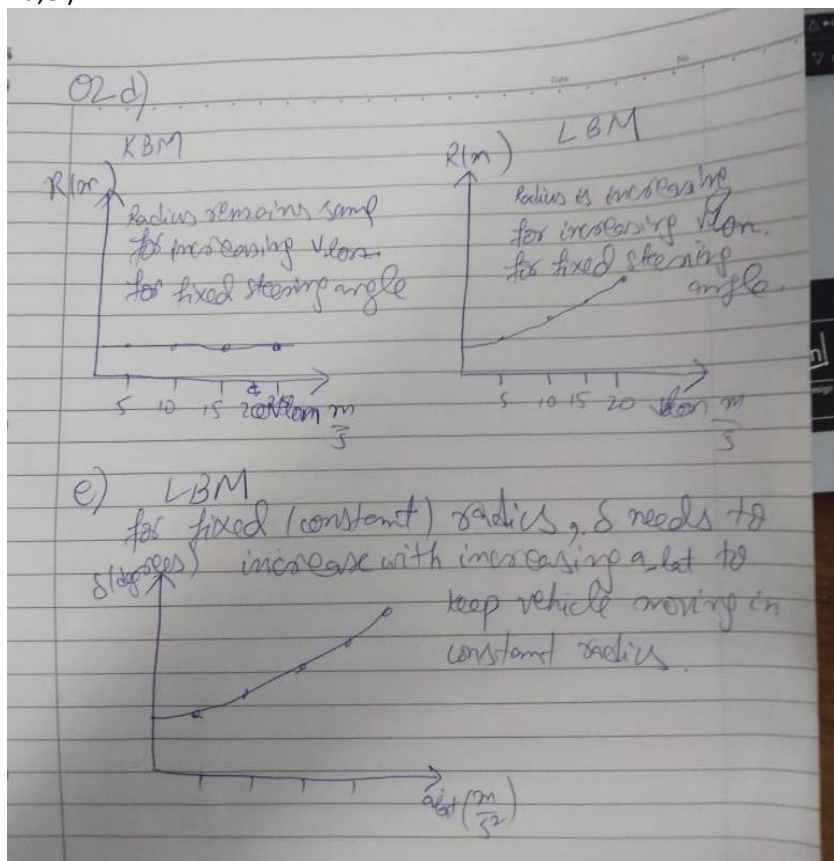 Q2 d)
KBM
R(m)
Radius remains same
for increasing vlon
for fixed steering angle
5 10 15 20 vlon m/s
LBM
R(m)
Radius is increasing
for increasing vlon.
for fixed steering
angle.
5 10 15 20 vlon m/s
e) LBM
for fixed (constant) radius, δ needs to
increase with increasing a_lat to
keep vehicle moving in
constant radius.
δ(degrees)
alat (m/s²)